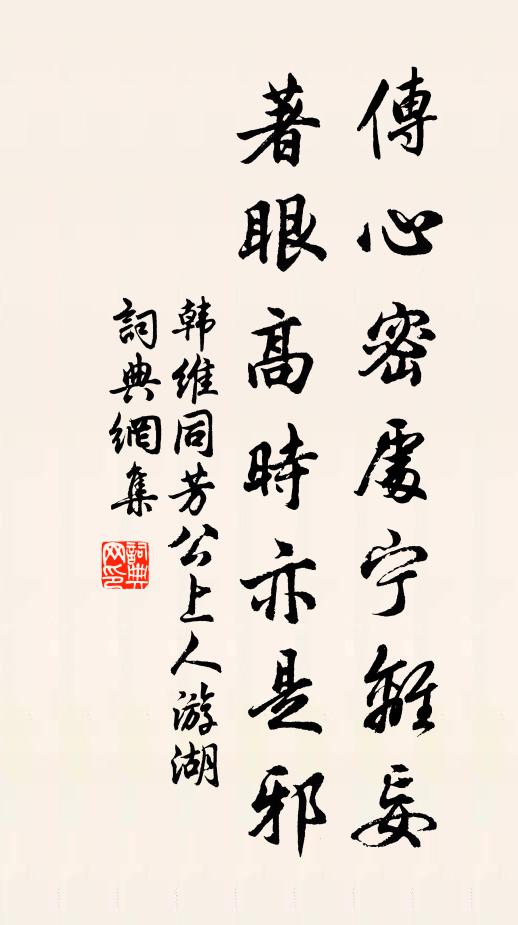 傳心密處宁離妄
著眼高時亦是邪
韩維同芳公上人游湖
詞典網集
詞典网印